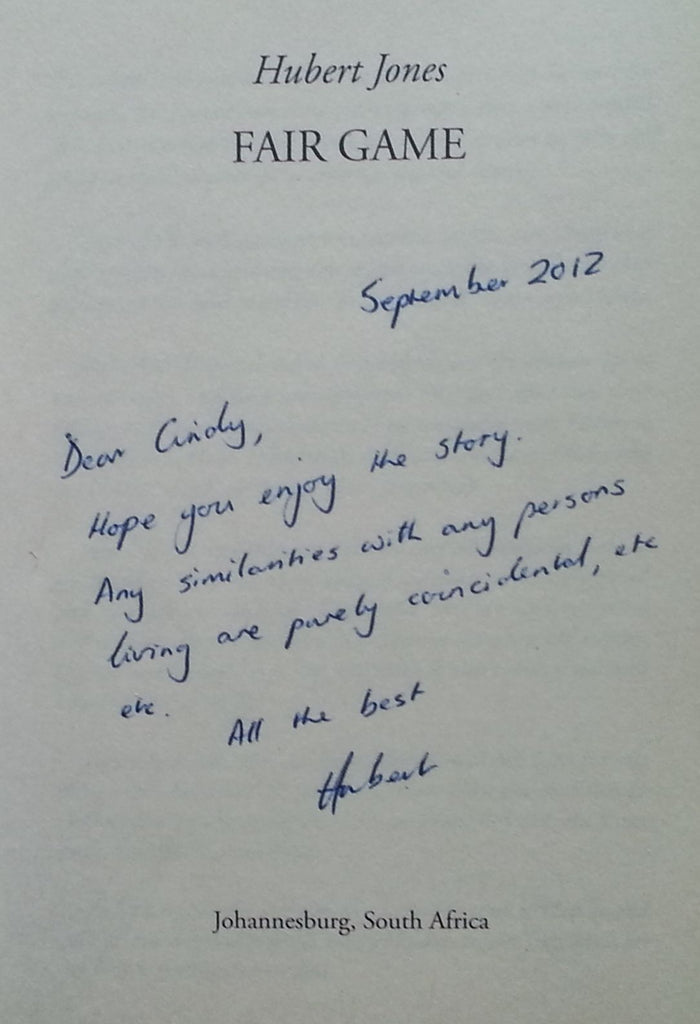 Hubert Jones
FAIR GAME
September 2012
Dear Cindy,
Hope you enjoy the story.
Any similarities with any persons
living are purely coincidental, etc
etc.
All the best
Hubert
Johannesburg, South Africa